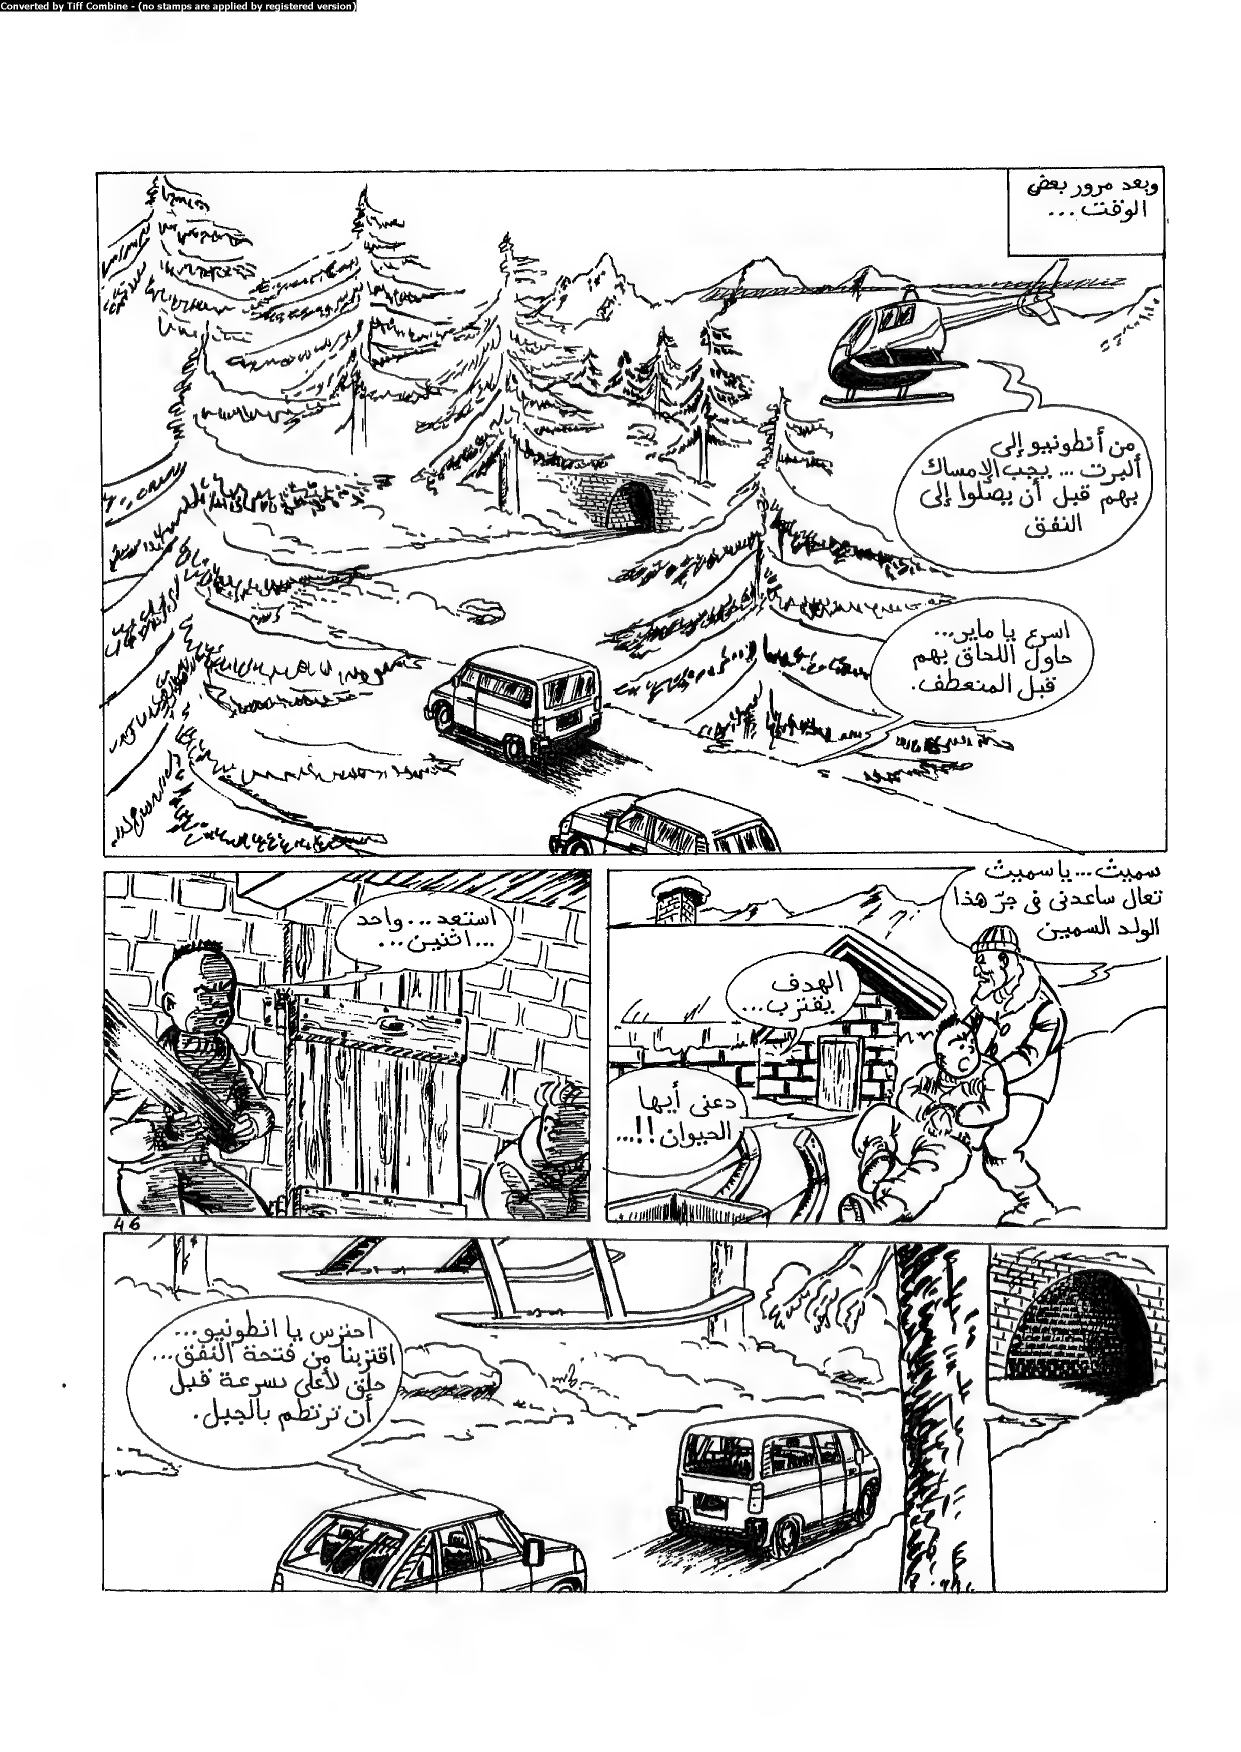 Converted by Tiff Combine - (no stamps are applied by registered version)
وبعد مرور بعض
الوقت...
من أنطونيو إلى
ألبرت... يجب الإمساك
بهم قبل أن يصلوا إلى
النفق
اسرع يا ماير...
حاول اللحاق بهم
قبل المنعطف.
سميث... يا سميث
تعال ساعدنى فى جرّ هذا
الولد السمين
الهدف
يقترب...
دعنى أيها
الحيوان!!...
استعد... واحد
...اثنين...
46
احترس يا انطونيو...
اقتربنا من فتحة النفق...
حلّق لأعلى بسرعة قبل
أن ترتطم بالجبل.